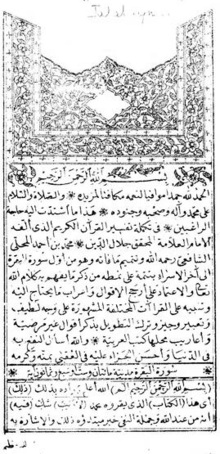 بِسْمِ اللَّهِ الرَّحْمَنِ الرَّحِيمِ
الحمد لله حمدا موافيا لنعمه مكافئا لمزيده والصلاة والسلام
على محمد وآله وصحبه وجنوده هذا ما اشتدت اليه حاجة
الراغبين في تكملة تفسير القرآن الكريم الذي الفه
الامام العلامة المحقق جلال الدين محمد بن احمد المحلي
الشافعي رحمه الله وتتميم ما فاته وهو من اول سورة البقرة
الى آخر الاسراء بتتمة على نمطه من ذكر ما يفهم به كلام الله
تعالى والاعتماد على ارجح الاقوال واعراب ما يحتاج اليه
وتنبيه على القرآت المختلفة المشهورة على وجه لطيف
وتعبير وجيز وترك التطويل بذكر اقوال غير مرضية
واعاريب محلها كتب العربية والله اسأل النفع به
في الدنيا واحسن الجزاء عليه في العقبى بمنه وكرمه
سورة البقرة مدنية مائتان وست او سبع وثمانون آية
(بسم الله الرحمن الرحيم الم) الله اعلم بمراده بذلك (ذلك)
اى هذا (الكتاب) الذي يقرؤه محمد (لا ريب) شك (فيه)
انه من عند الله وجملة النفي خبر مبتدؤه ذلك والاشارة به